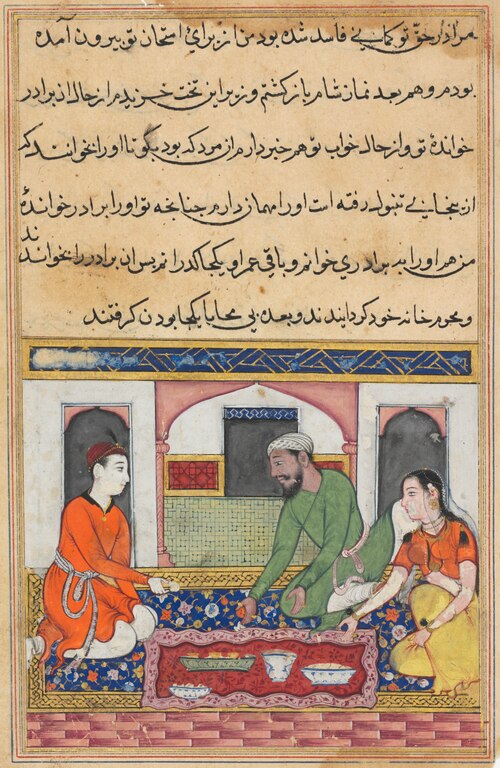 مرا در حق تو کمانی فاسد شده بود من از برای امتحان تو بیرون آمده
بودم و هم بعد نماز شام باز کشتم و زیر این تخت خزیدم از حال این برادر
خواندۀ تو و از حال خواب تو هم خبر دارم از مرد که بود بگو تا او را خوانند که
از اینجا رفته است او را مهمان دارم چنانچه تو او را برادر خواندۀ
من هم او را به برادری خوانم و باقی عمر او یکجا گذرانم پس ان برادر را بخواندند
و محرم خانه خود کردانیدند و بعده بی محابا یکجا بودن کرفتند